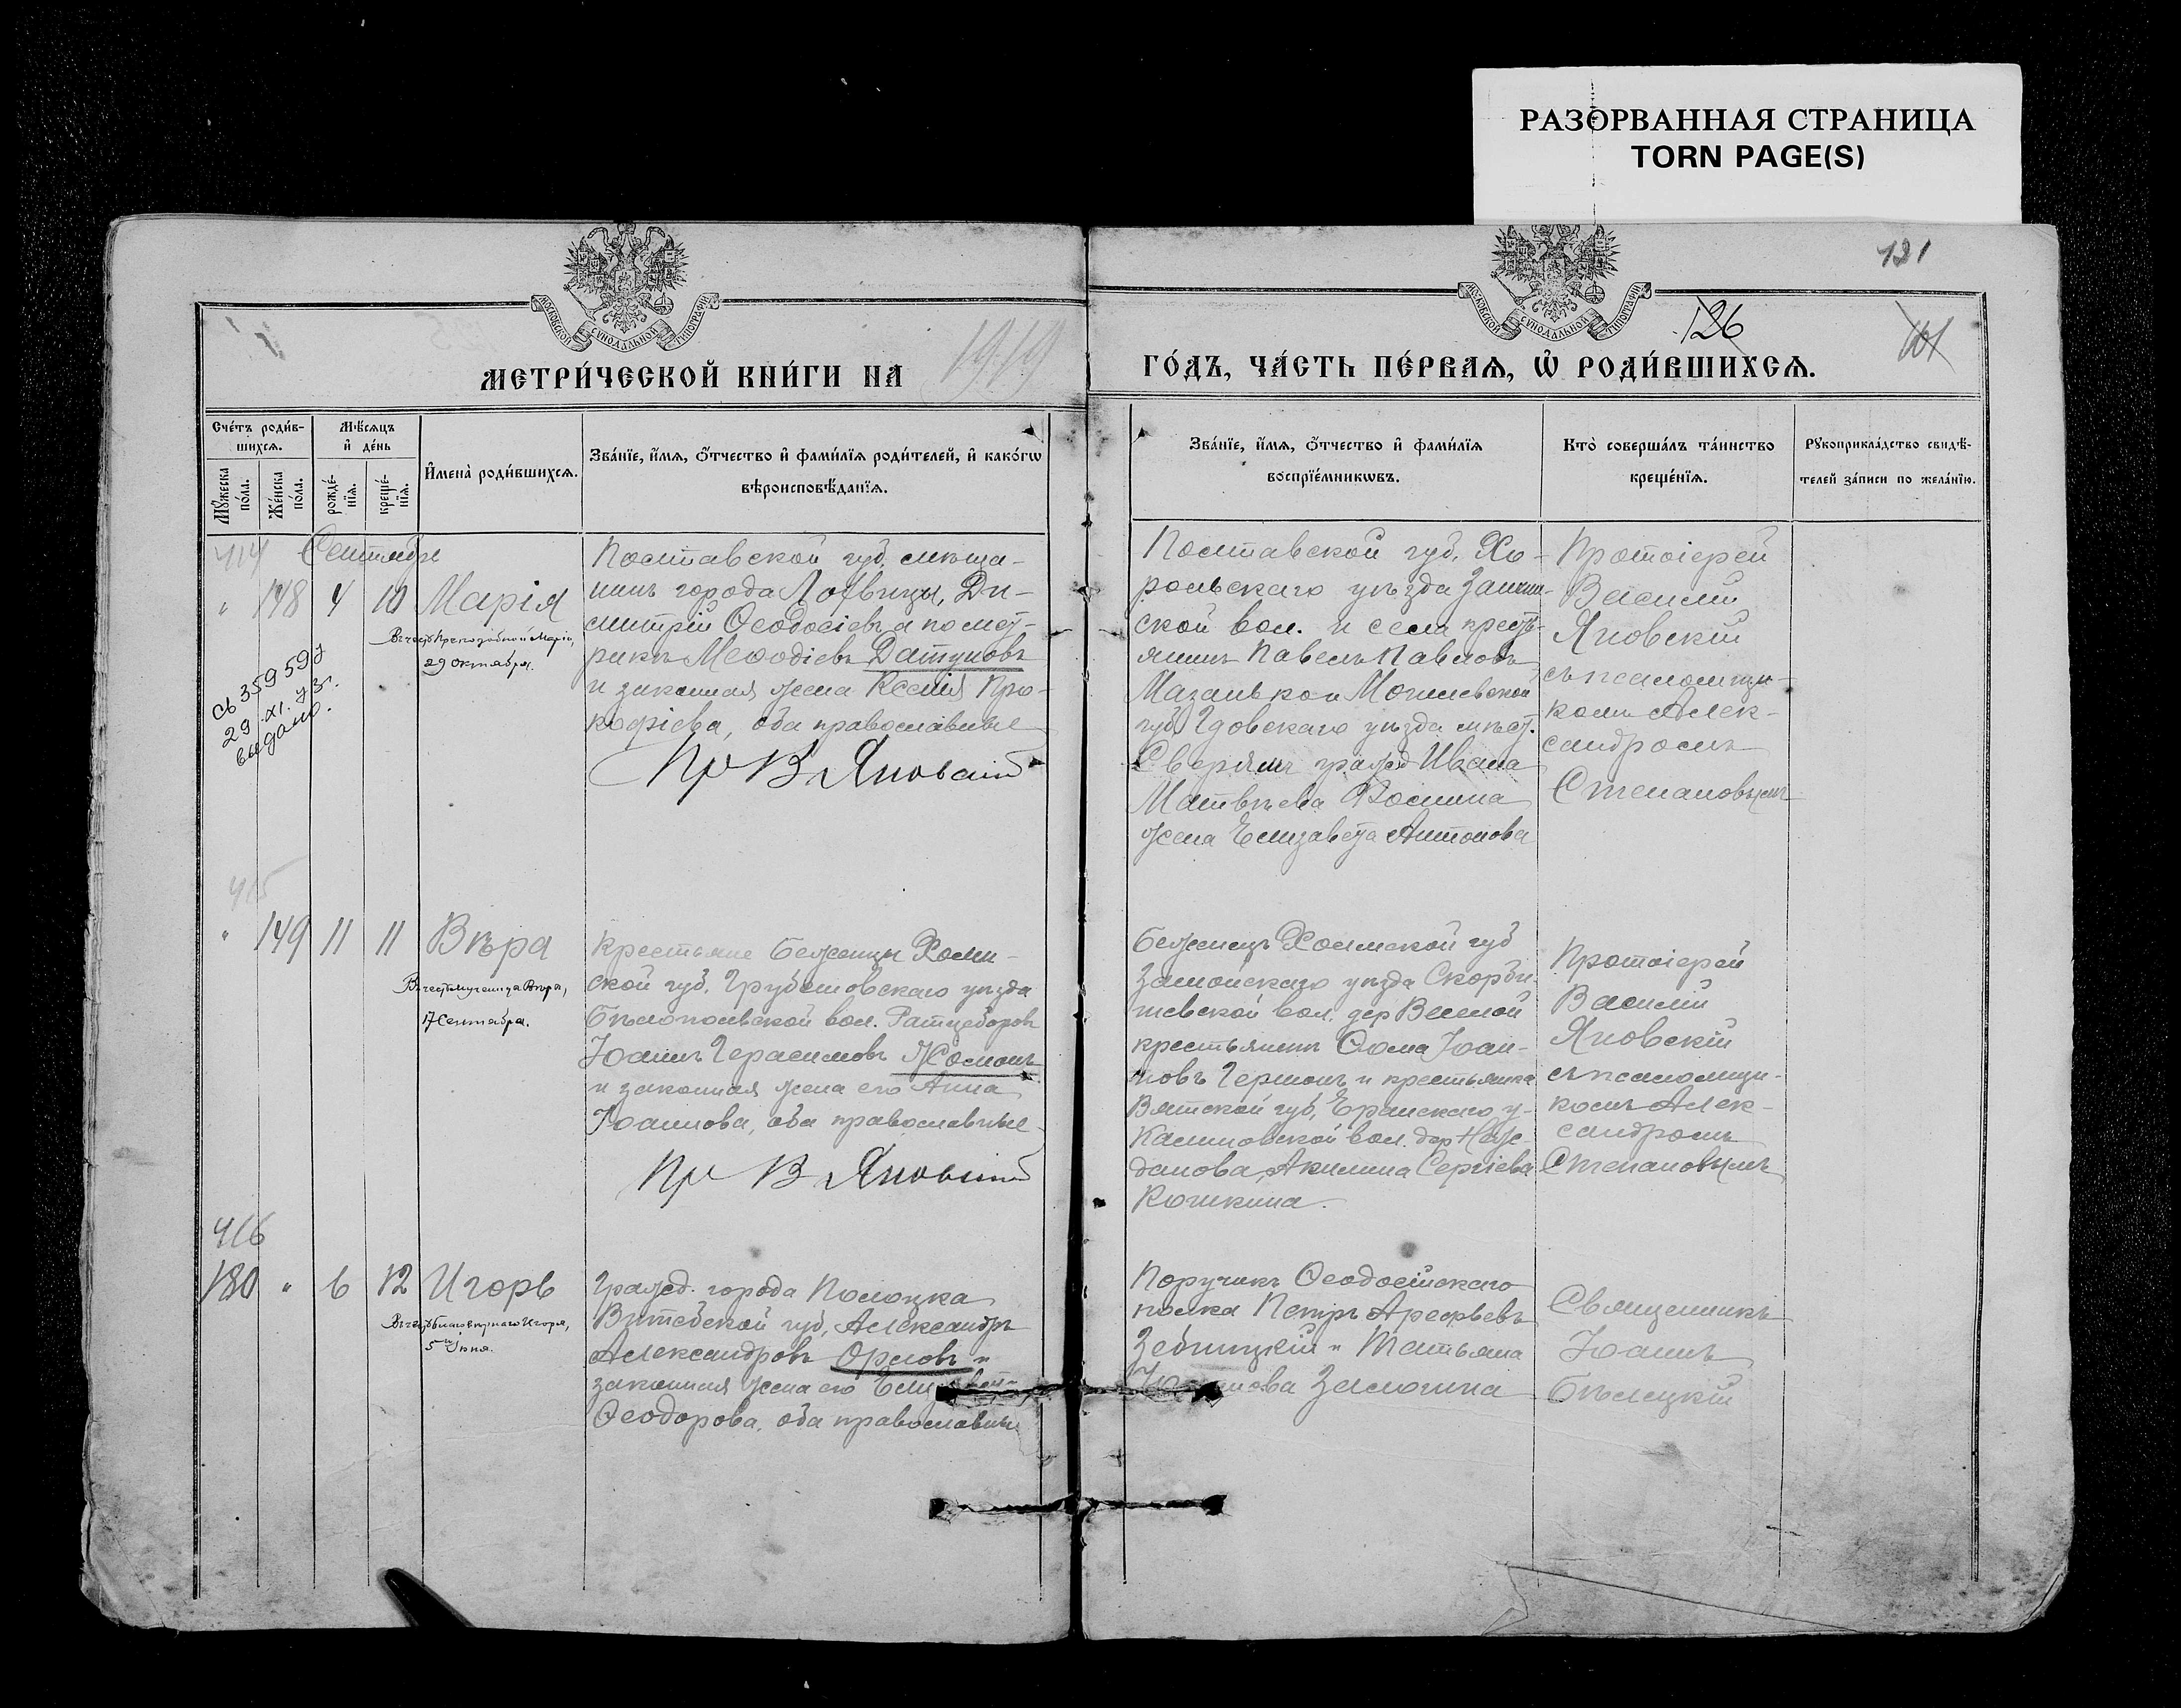 РАЗОРВАННАЯ СТРАНИЦА
TORN PAGE(S)
МОСКОВСКОЙ СѴНОДАЛЬНОЙ ТИПОГРАФІИ
МОСКОВСКОЙ СѴНОДАЛЬНОЙ ТИПОГРАФІИ
121
126
101
МЕТРИ́ЧЕСКОЙ КНИ́ГИ НА 1919
ГО́ДЪ, ЧА́СТЬ ПЕ́РВАЯ, Ѡ҆ РОДИ́ВШИХСЯ.
Сче́тъ роди́в-
шихся.
Мꙋ́жеска
по́ла.
Же́нска
по́ла.
Мѣ́сяцъ
и҆ де́нь
рожде́-
нїя.
креще́-
нїя.
И҆мена̀ роди́вшихся.
Зва́нїе, и҆́мя, ѻ҆́тчество и҆ фами́лїя роди́телей, и҆ како́гѡ
вѣроисповѣ́данїя.
Зва́нїе, и҆́мя, ѻ҆́тчество и҆ фами́лїя
воспрїе́мникѡвъ.
Кто̀ соверша́лъ та́инство
креще́нїя.
Рꙋкоприкла́дство свидѣ́-
телей за́писи по жела́нїю.
414
Сентябрь
" 148 4 10 Марія
Въ честь Преподобной Маріи,
29 октября.
29.XI.
выдано.
Полтавской губ. мѣща-
нинъ города Лохвицы, Ди-
митрій Ѳеодосіевъ а по мет-
рикѣ Меѳодіевъ Датуновъ
и законная жена Ксенія Про-
кофіева, оба православные
Пр В Яновскій
Полтавской губ. Хо-
рольскаго уѣзда
ской вол. и села кресть-
янинъ Павелъ Павловъ
Мазанько и Могилевской
губ. уѣзда мѣст.
гражд Ивана
Матвѣева
жена Елизавета Антонова
Протоіерей
Василій
Яновскій
съ псаломщи-
комъ Алек-
сандромъ
Степановымъ
415
" 149 11 11 Вѣра
Въ честь мученицы Вѣры,
17 Сентября.
Крестьяне беженцы Холм-
ской губ. Грубешовскаго уѣзда
Бѣлопольской вол.
Іоаннъ Герасимовъ
и законная жена его Анна
Іоаннова, оба православные
Пр В Яновскій
Беженецъ Холмской губ
Замойскаго уѣзда
шевской вол. дер
крестьянинъ Ѳома Іоан-
новъ и крестьянка
Вятской губ, Яранскаго у-
вол. дер Наж-
данова, Акилина Сергіева
Кошкина.
Протоіерей
Василій
Яновскій
съ псаломщи-
комъ Алек-
сандромъ
Степановымъ
416
180 " 6 12 Игорь
Въ честь благовѣрнаго Игоря,
5 Іюня.
Гражд. города Полоцка
Витебской губ, Александръ
Александровъ Орловъ и
законная жена его
Ѳеодорова, оба православные
Поручикъ Ѳеодосійскаго
полка Петръ Арефьевъ
и Татьяна
Священникъ
Іоаннъ
Бѣлецкій